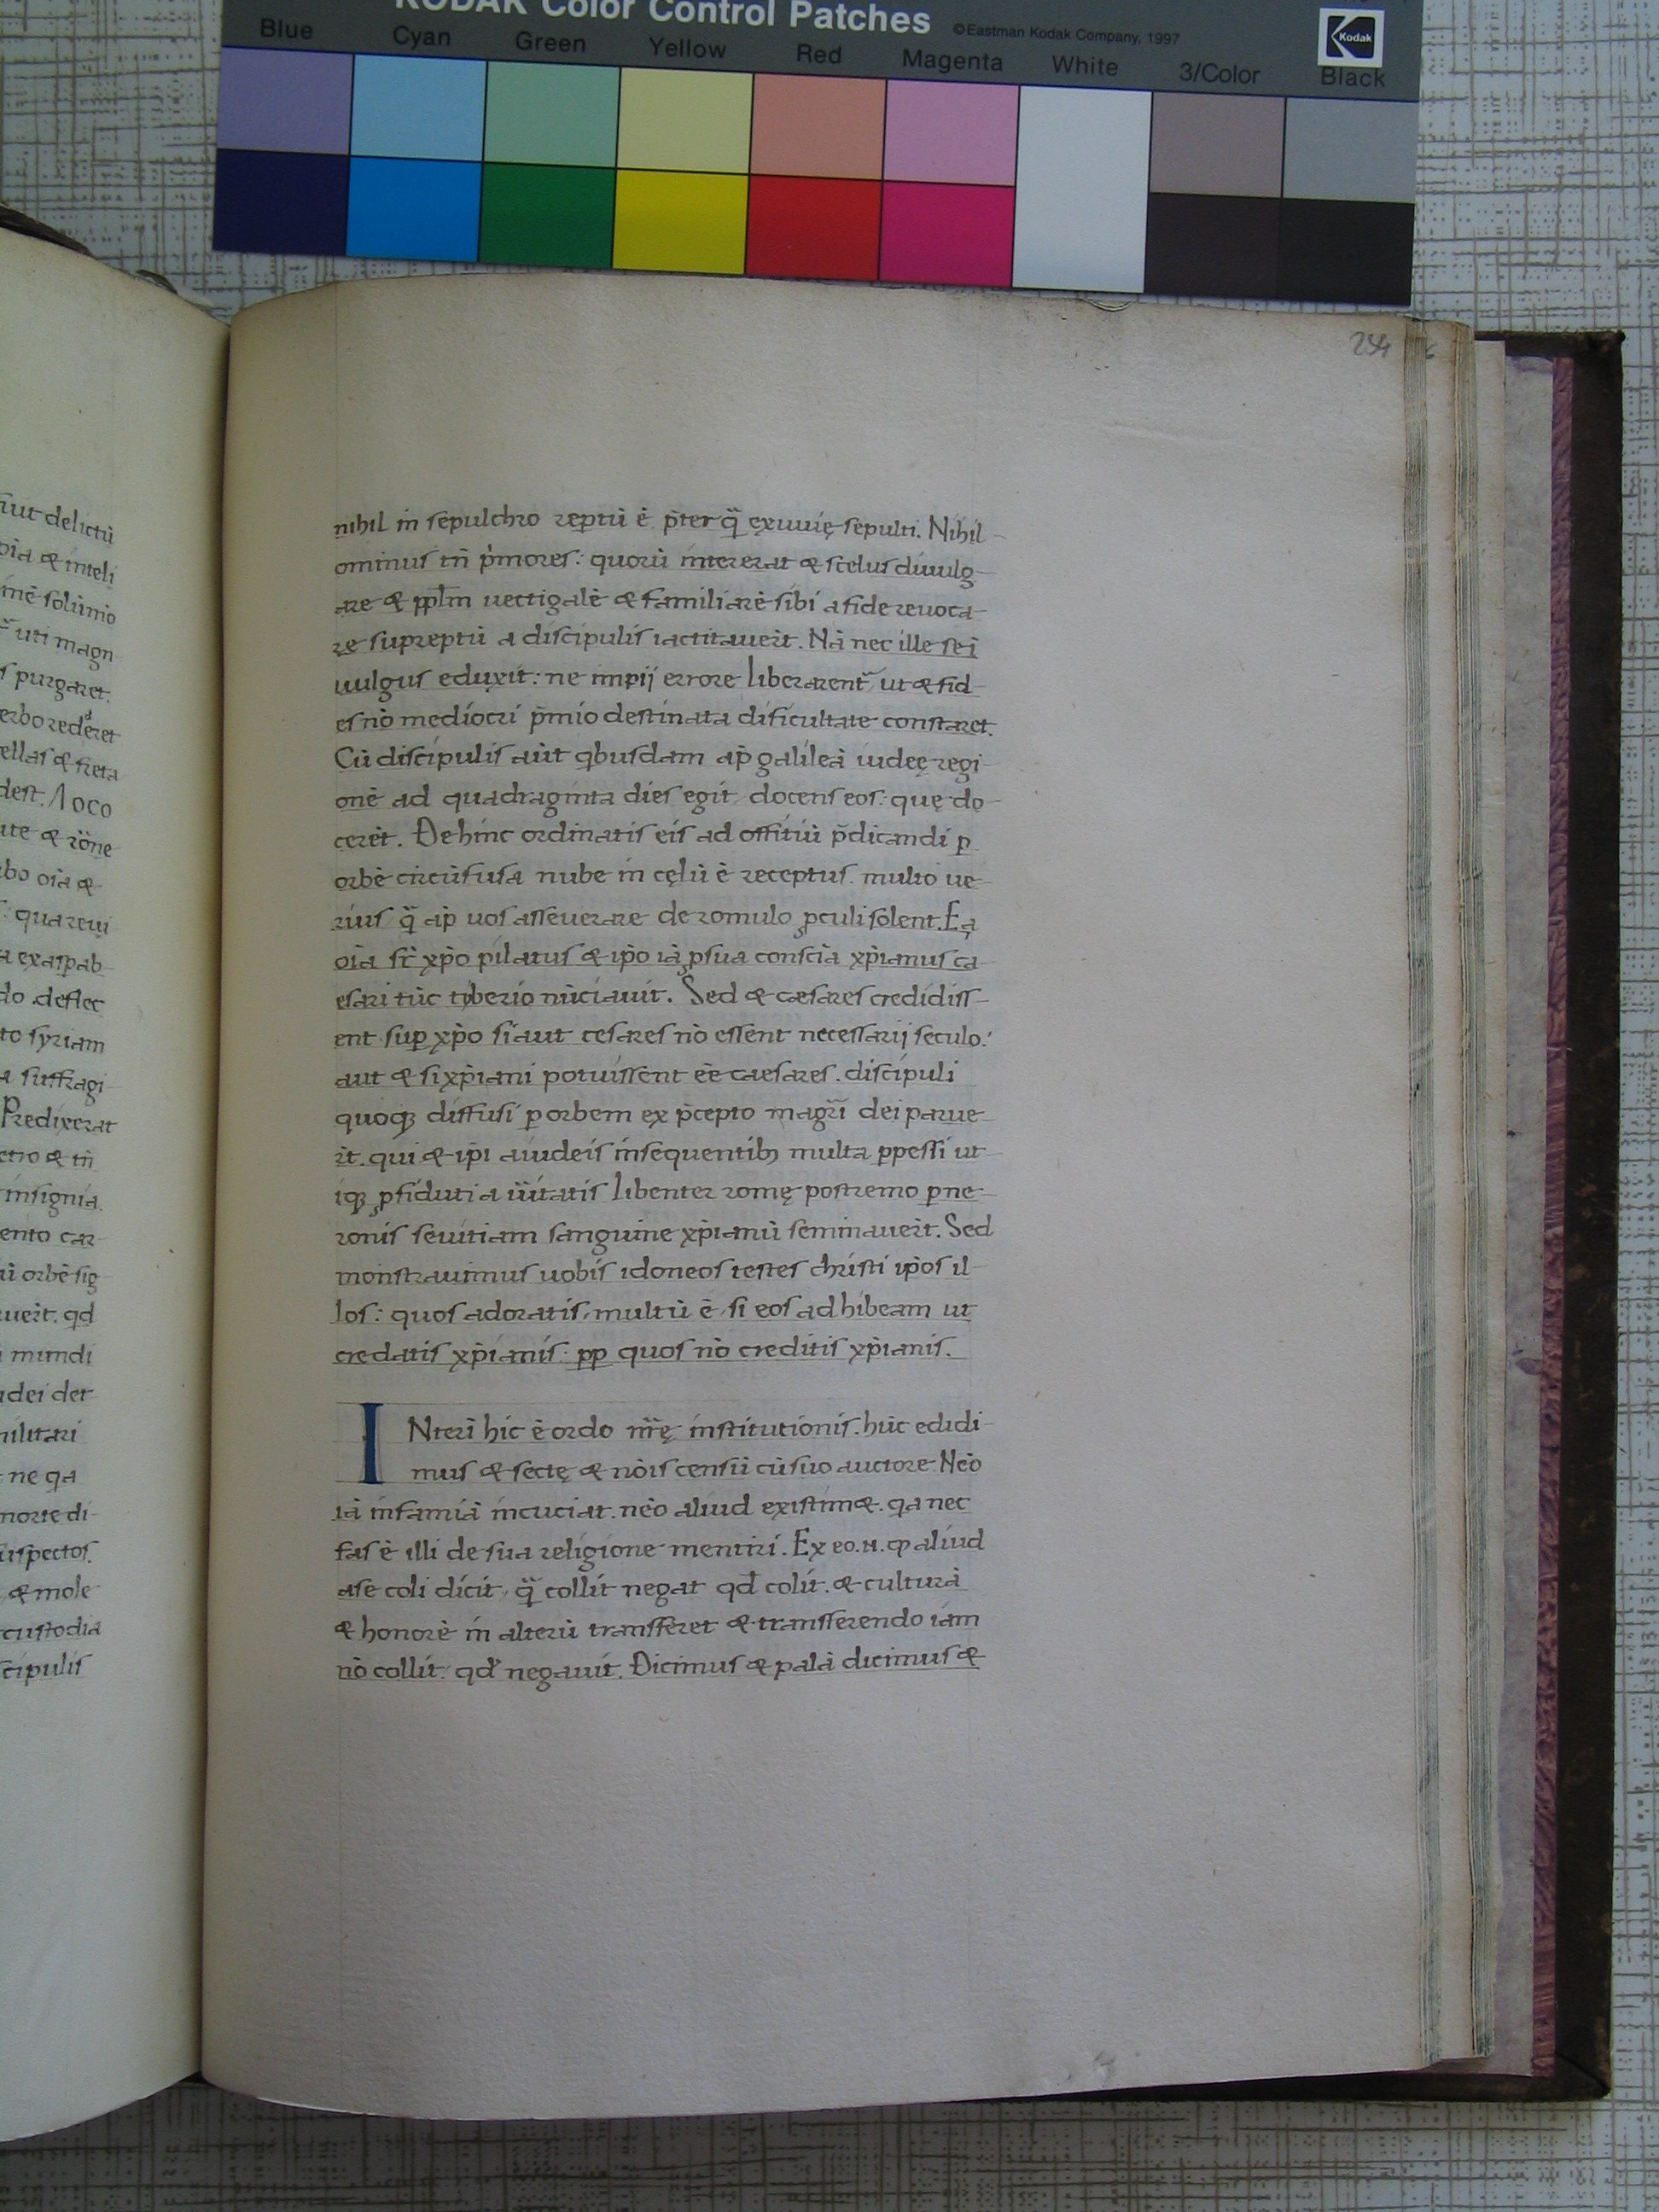 KODAK Color Control Patches
©Eastman Kodak Company, 1997
Kodak
Blue Cyan Green Yellow Red Magenta White 3/Color Black
234
nihil in sepulchro reptū ē p̄ter q̄ ęxuuię sepulti. Nihil
ominus tn̄ p̄mores: quorū intererat & scelus diuulg
are & pp̄lm uectigalē & familiarē sibi a fide reuoca
re supreptū a discipulis iactitauer̄t. Nā nec ille se ī
uulgus eduxit: ne impij errore liberarent᷑ ut & fid
es nō mediocri p̄mio destinata dificultate constaret.
Cū discipulis aūt qbusdam ap̄ galileā iudeę regi
onē ad quadraginta dies egit docens eos: quę do
cerēt. Dehinc ordinatis eis ad offitiū p̄dicandi ꝑ
orbē circūfusa nube in cęlū ē receptus. multo ue
rius q̄ ap̄ uos asseuerare de romulo ꝓculi solent. Ea
oīa sr̄ xp̄o pilatus & ip̄o iā ꝓ sua consciā xp̄ianus ca
esari tūc tyberio nūciauit. Sed & cæsares credidiss
ent sup xp̄o si aut cesares nō essent necessarij seculo:
aut & si xp̄iani potuissent eē caesares. discipuli
quoqꝫ diffusi ꝑ orbem ex p̄cepto magr̄i dei parue
r̄t. qui & ip̄i a iudeis insequentibꝫ multa ꝑpessi ut
iqꝫ ꝓ fidutia ūitatis libenter romę postremo ꝑ ne
ronis seuitiam sanguine xp̄ianū seminauer̄t. Sed
monstrauimus uobis idoneos testes christi ip̄os il
los: quos adoratis, multū ē si eos adhibeam ut
credatis xp̄ianis: pp quos nō creditis xp̄ianis.
INterī hic ē ordo nr̄ę institutionis. hūc edidi
mus & sectę & nōis censū cū suo auctore. Neō
iā infamiā incuciat. neō aliud existimæ. qa nec
fas ē illi de sua religione mentiri. Ex eo .n. ꝙ aliud
a se coli dicit, q̄ collit negat qd colit. & culturā
& honorē in alterū transferet & transferendo iam
nō collit: qd negauit. Dicimus & palā dicimus &